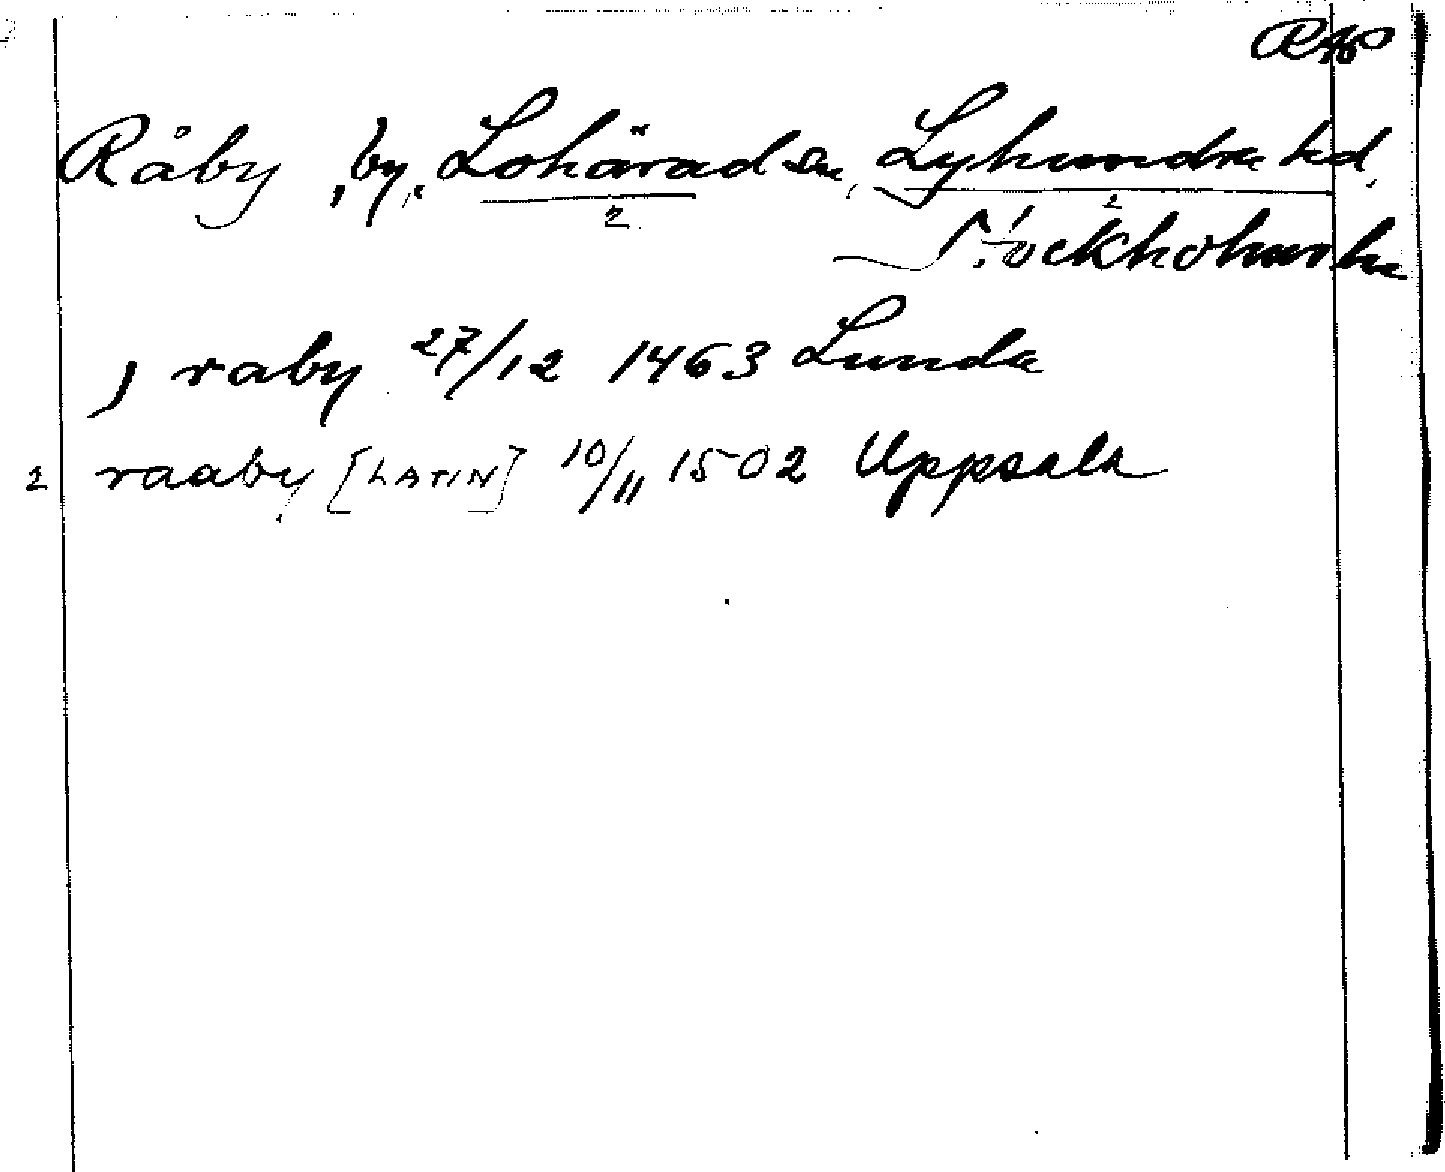 Råby, by, Lohärad sn, Lyhundra hd,
2 2
Stockholms län
) raby 27/12 1463 Lunda
2 raaby [LATIN] 10/11 1502 Uppsala